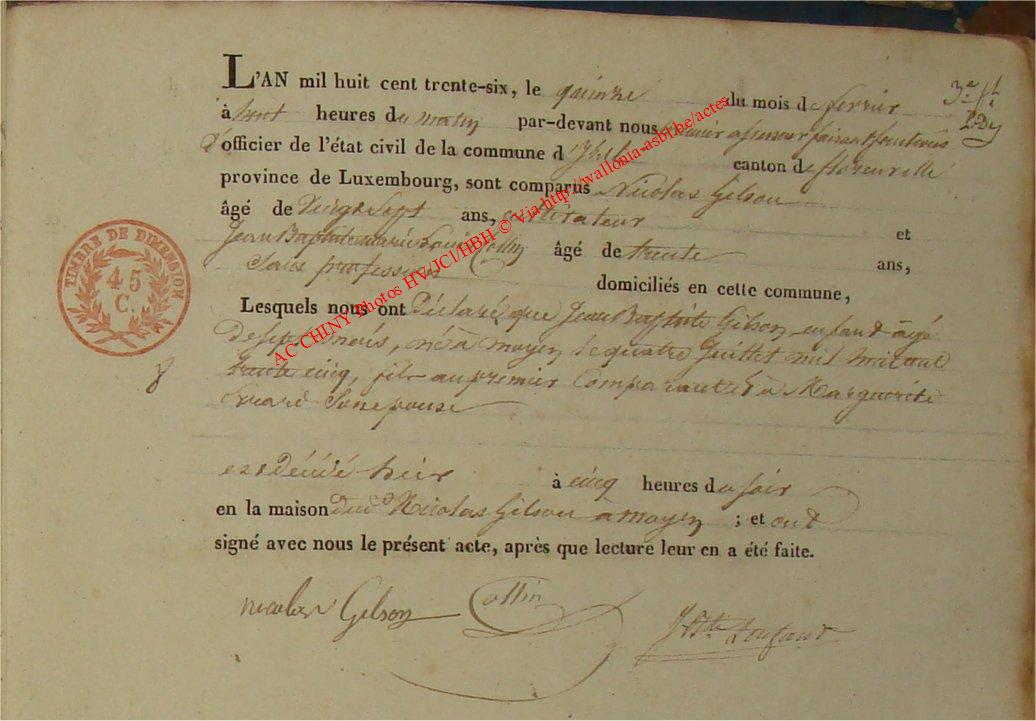 L'AN mil huit cent trente-six, le quinze du mois de fevrier
à huit heures du matin par-devant nous premier assesseur faisant fonctions
d'officier de l'état civil de la commune d' canton de florenville
province de Luxembourg, sont comparus Nicolas Gilson
âgé de Vingt Sept ans, cultivateur et
Jean Baptiste marie Louis Collin âgé de trente ans,
Sans profession domiciliés en cette commune,
Lesquels nous ont Déclaré que Jean Baptiste Gilson enfant âgé
de sept mois, né à moyen le quatre Juillet mil huit cent
trente cinq, fils au premier Comparant et à Marguerite
Evrard Son epouse
est décédé hier à cinq heures du soir
en la maison dud Nicolas Gilson à moyen ; et ont
signé avec nous le présent acte, après que lecture leur en a été faite.
nicolas Gilson Collin
TIMBRE DE DIMENSION
45
C.
AC CHINY Photos HV/JCl/HBH © Via http://wallonia-asbl.be/actes